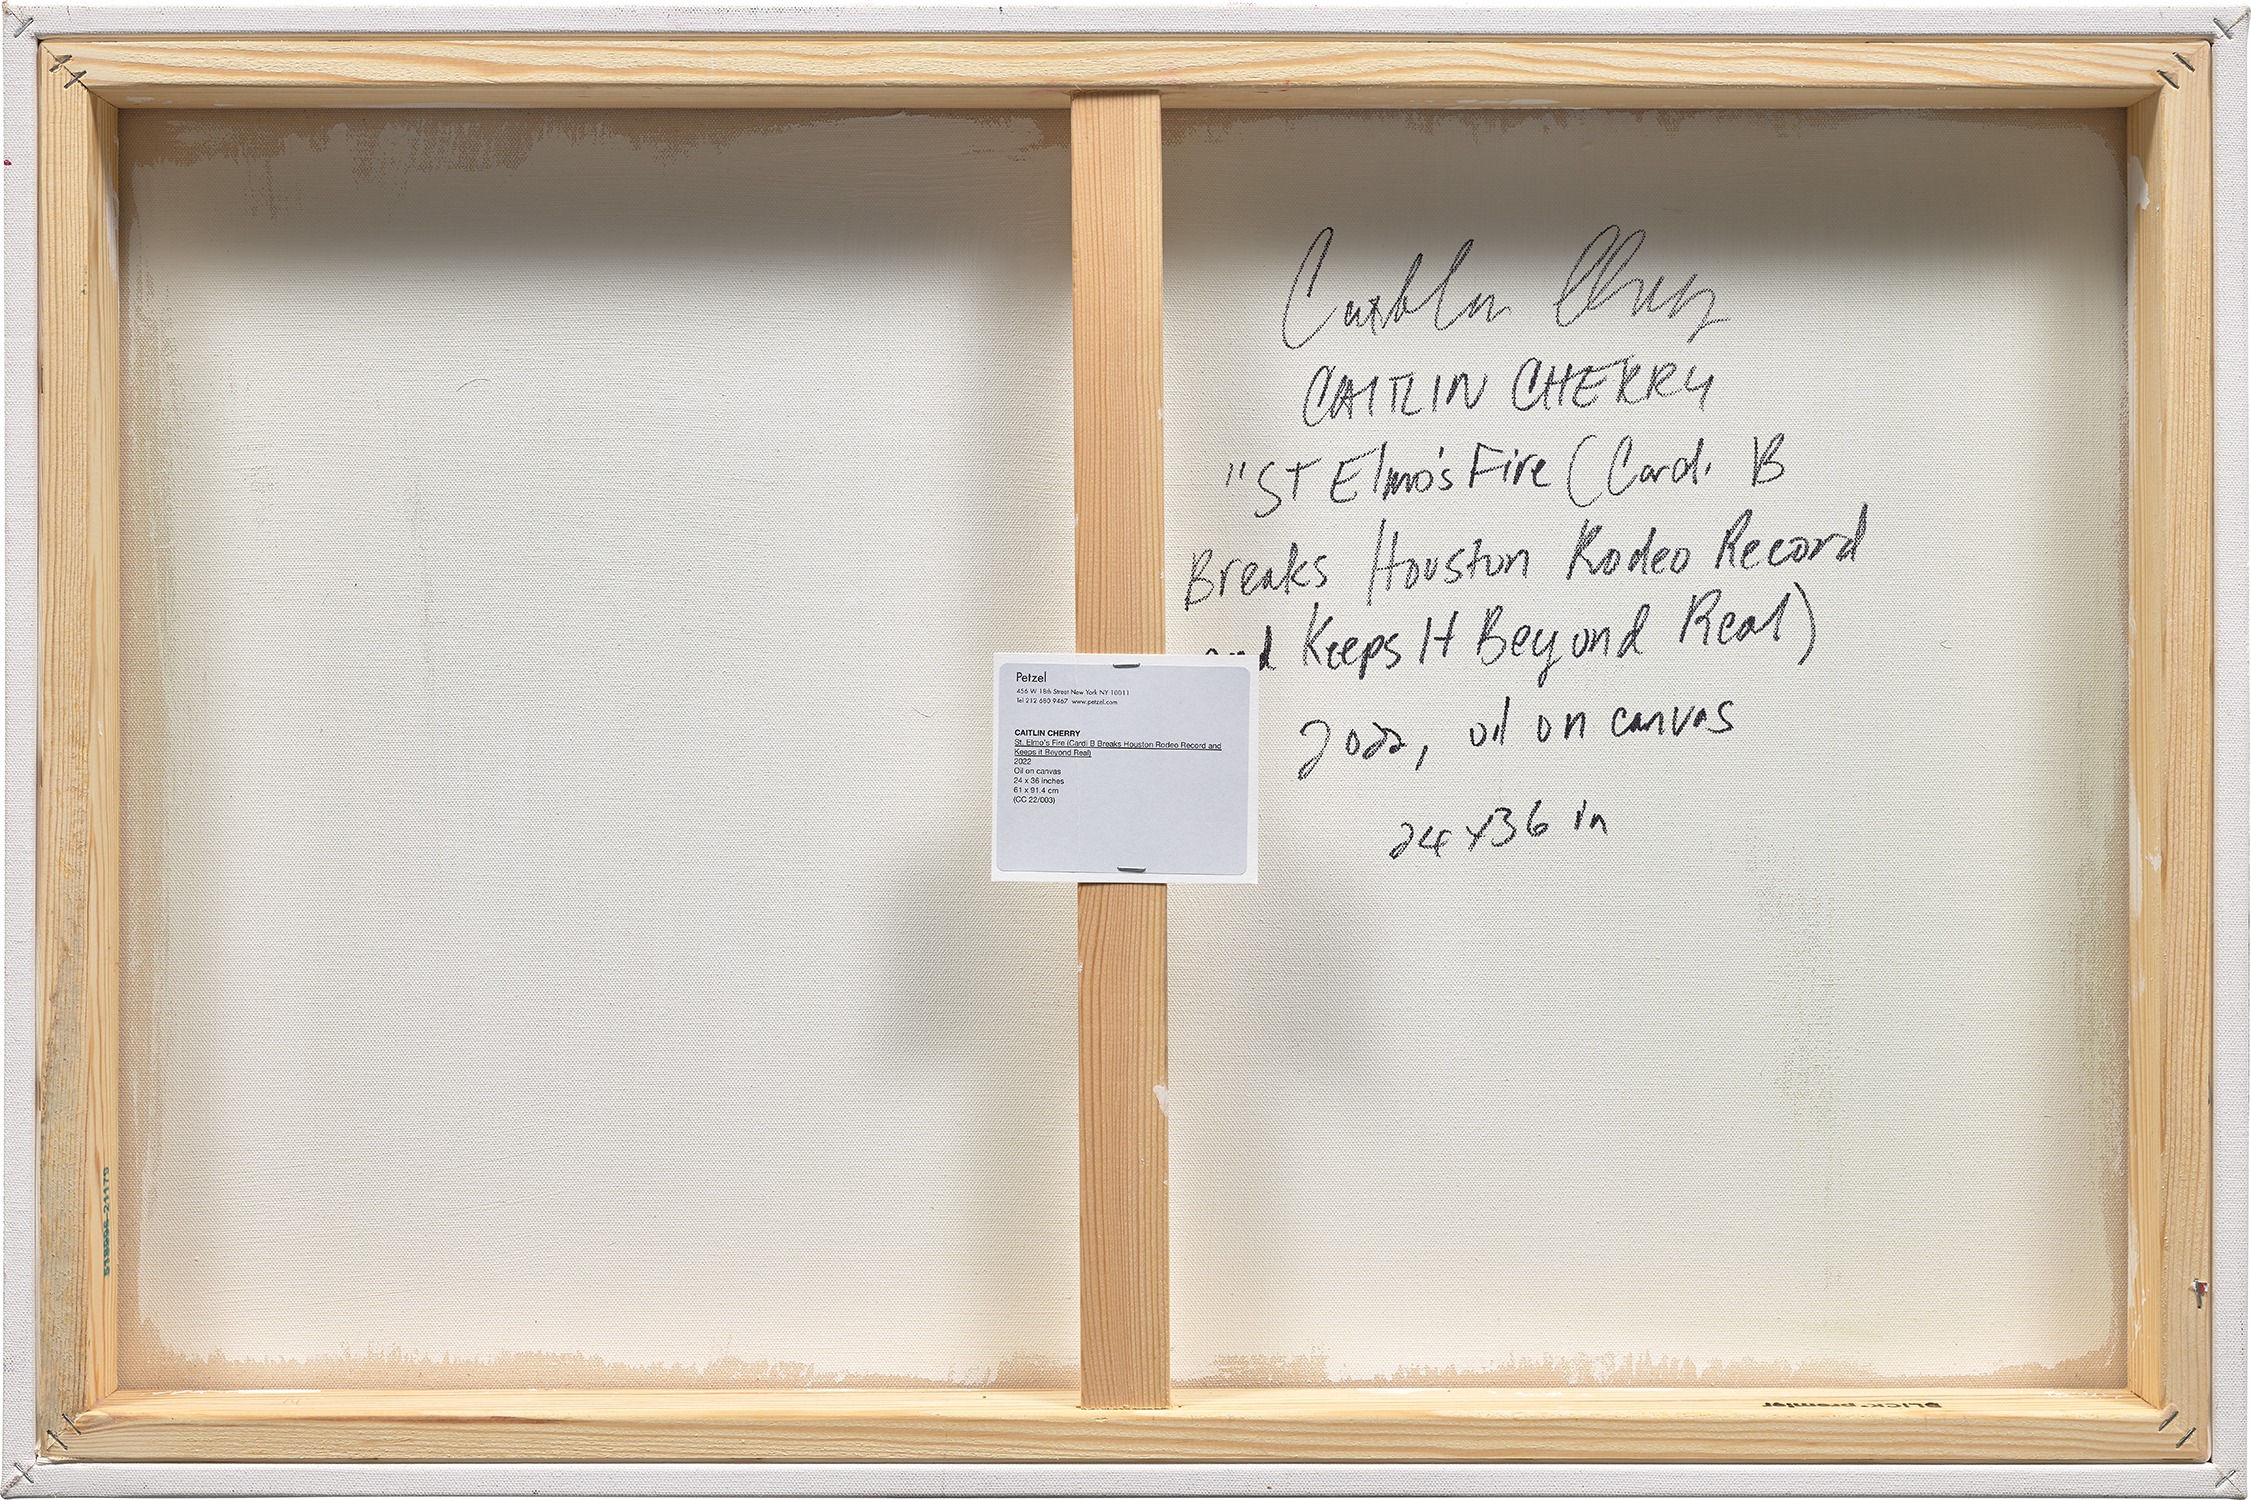 Caitlin Cherry
CAITLIN CHERRY
"ST Elmo's Fire (Cardi B
Breaks Houston Rodeo Record
and Keeps It Beyond Real)
2022, oil on canvas
24 x 36 in
Petzel
456 W 18th Street New York NY 10011
Tel 212 680 9467 www.petzel.com
CAITLIN CHERRY
St. Elmo's Fire (Cardi B Breaks Houston Rodeo Record and
Keeps it Beyond Real)
2022
Oil on canvas
24 x 36 inches
61 x 91.4 cm
(CC 22/003)
BLICK premier